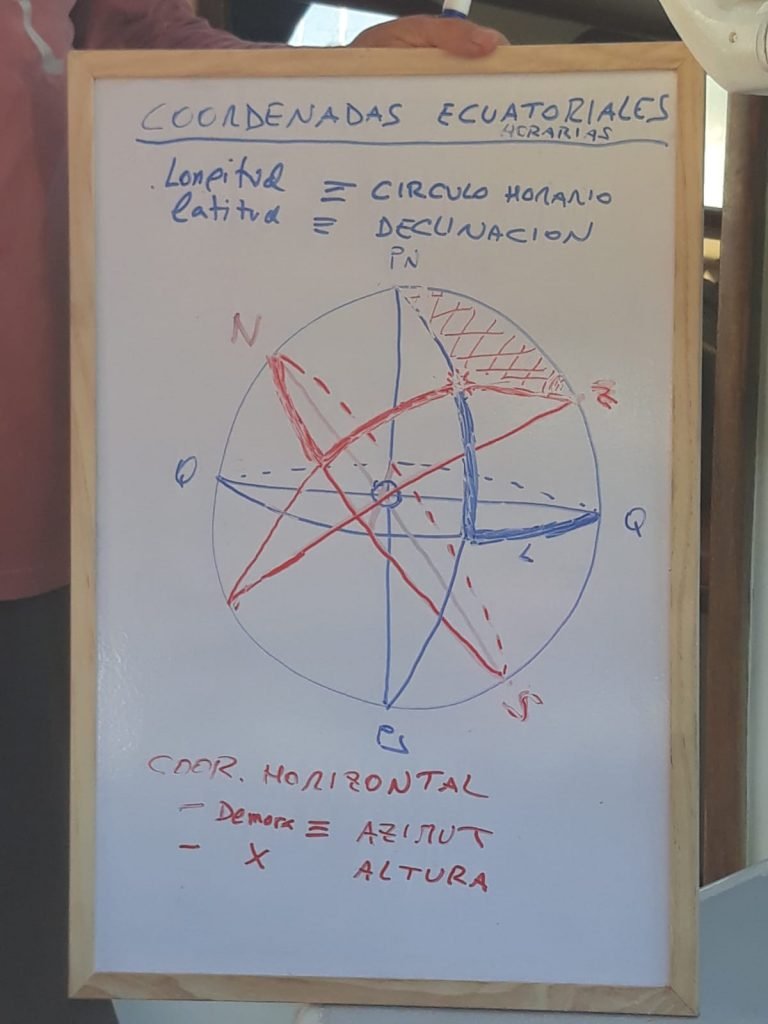 COORDENADAS ECUATORIALES
HORARIAS
Longitud ≡ CIRCULO HORARIO
latitud ≡ DECLINACION
PN
N
Z
Q
Q
L
S
Ps
COOR. HORIZONTAL
- Demora ≡ AZIMUT
- X ALTURA